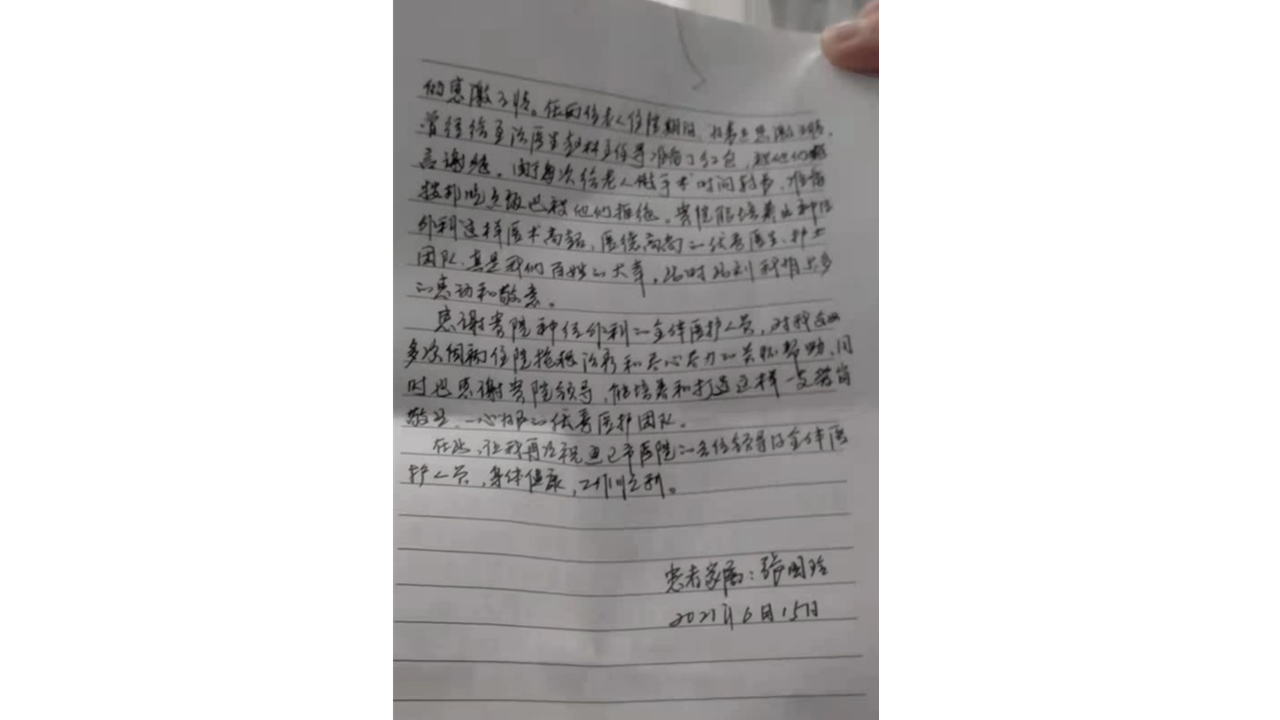 的感激之情。在两位老人住院期间,怀着无比感激之情,
曾经给主治医生 主任等准备了红包,被他们
言谢绝。由于每次给老人做手术时间较长,准备
些点饭也被他们拒绝。贵院能培养出神经
外科这样医术高超、医德高尚的优秀医生、护士
团队,真是我们百姓的大幸,此时此刻 有太多
的感动和敬意。
感谢贵院神经外科的全体医护人员,对我
多次 住院抢救治疗和尽心尽力的关怀帮助,同
时也感谢贵院领导,能培养和打造这样一支爱岗
敬业、一心 的优秀医护团队。
在此,让我再次祝 市医院的各位领导及全体医
护人员,身体健康,工作顺利。
患者家属:张国
2021年6月15日